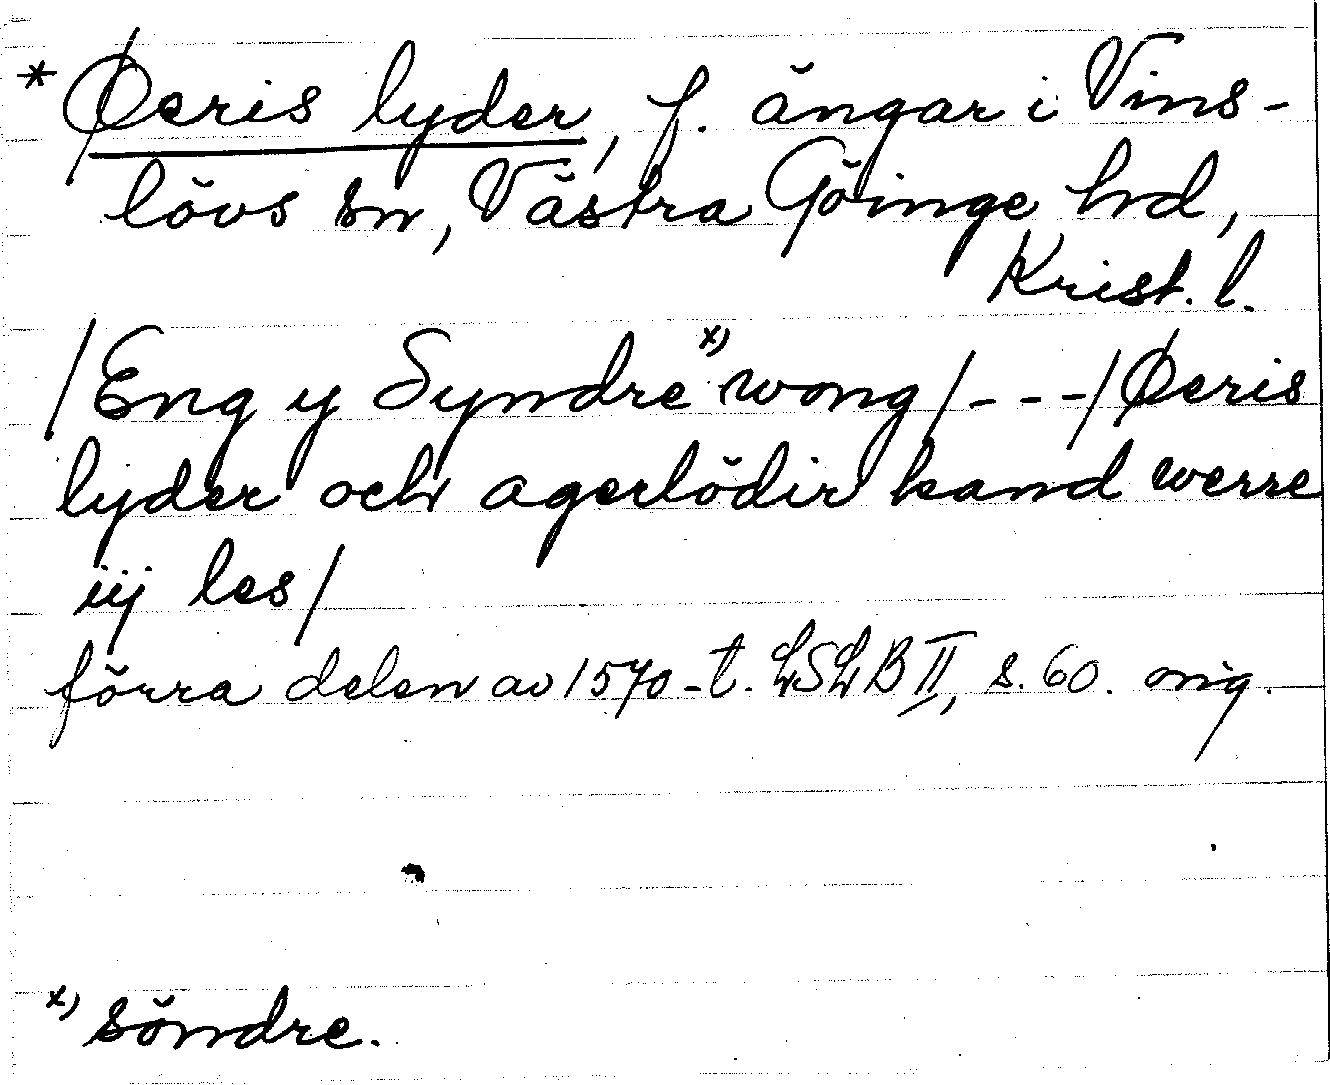 * Øeris lyder, f. ängar i Vins-
lövs sn, Västra Göinge hd,
Krist. l.
/Eng y Syndre x) wong/---/Øeris
lyder och agerlödir kand werre
iij les/
förra delen av 1570-t. LSLB II, s. 60. orig.
x) söndre.